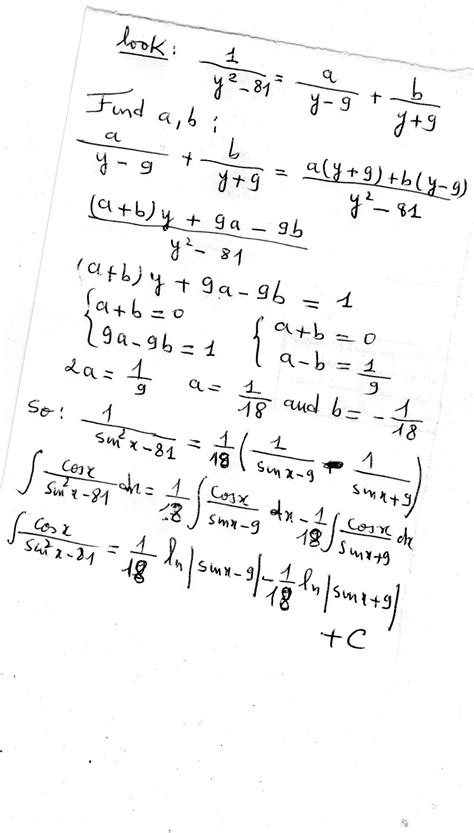 look: 1/(y² − 81) = a/(y − 9) + b/(y + 9)
Find a, b :
a/(y − 9) + b/(y + 9) = (a(y + 9) + b(y − 9))/(y² − 81)
((a + b)y + 9a − 9b)/(y² − 81)
(a + b)y + 9a − 9b = 1
{ a + b = 0 { a + b = 0
{ 9a − 9b = 1 { a − b = 1/9
2a = 1/9 a = 1/18 and b = − 1/18
So: 1/(sin²x − 81) = 1/18 ( 1/(sinx − 9) - 1/(sinx + 9) )
∫ cosx/(sin²x − 81) dx = 1/18 ∫ cosx/(sinx − 9) dx − 1/18 ∫ cosx/(sinx + 9) dx
∫ cosx/(sin²x − 81) = 1/18 ln |sinx − 9| − 1/18 ln |sinx + 9|
+ C